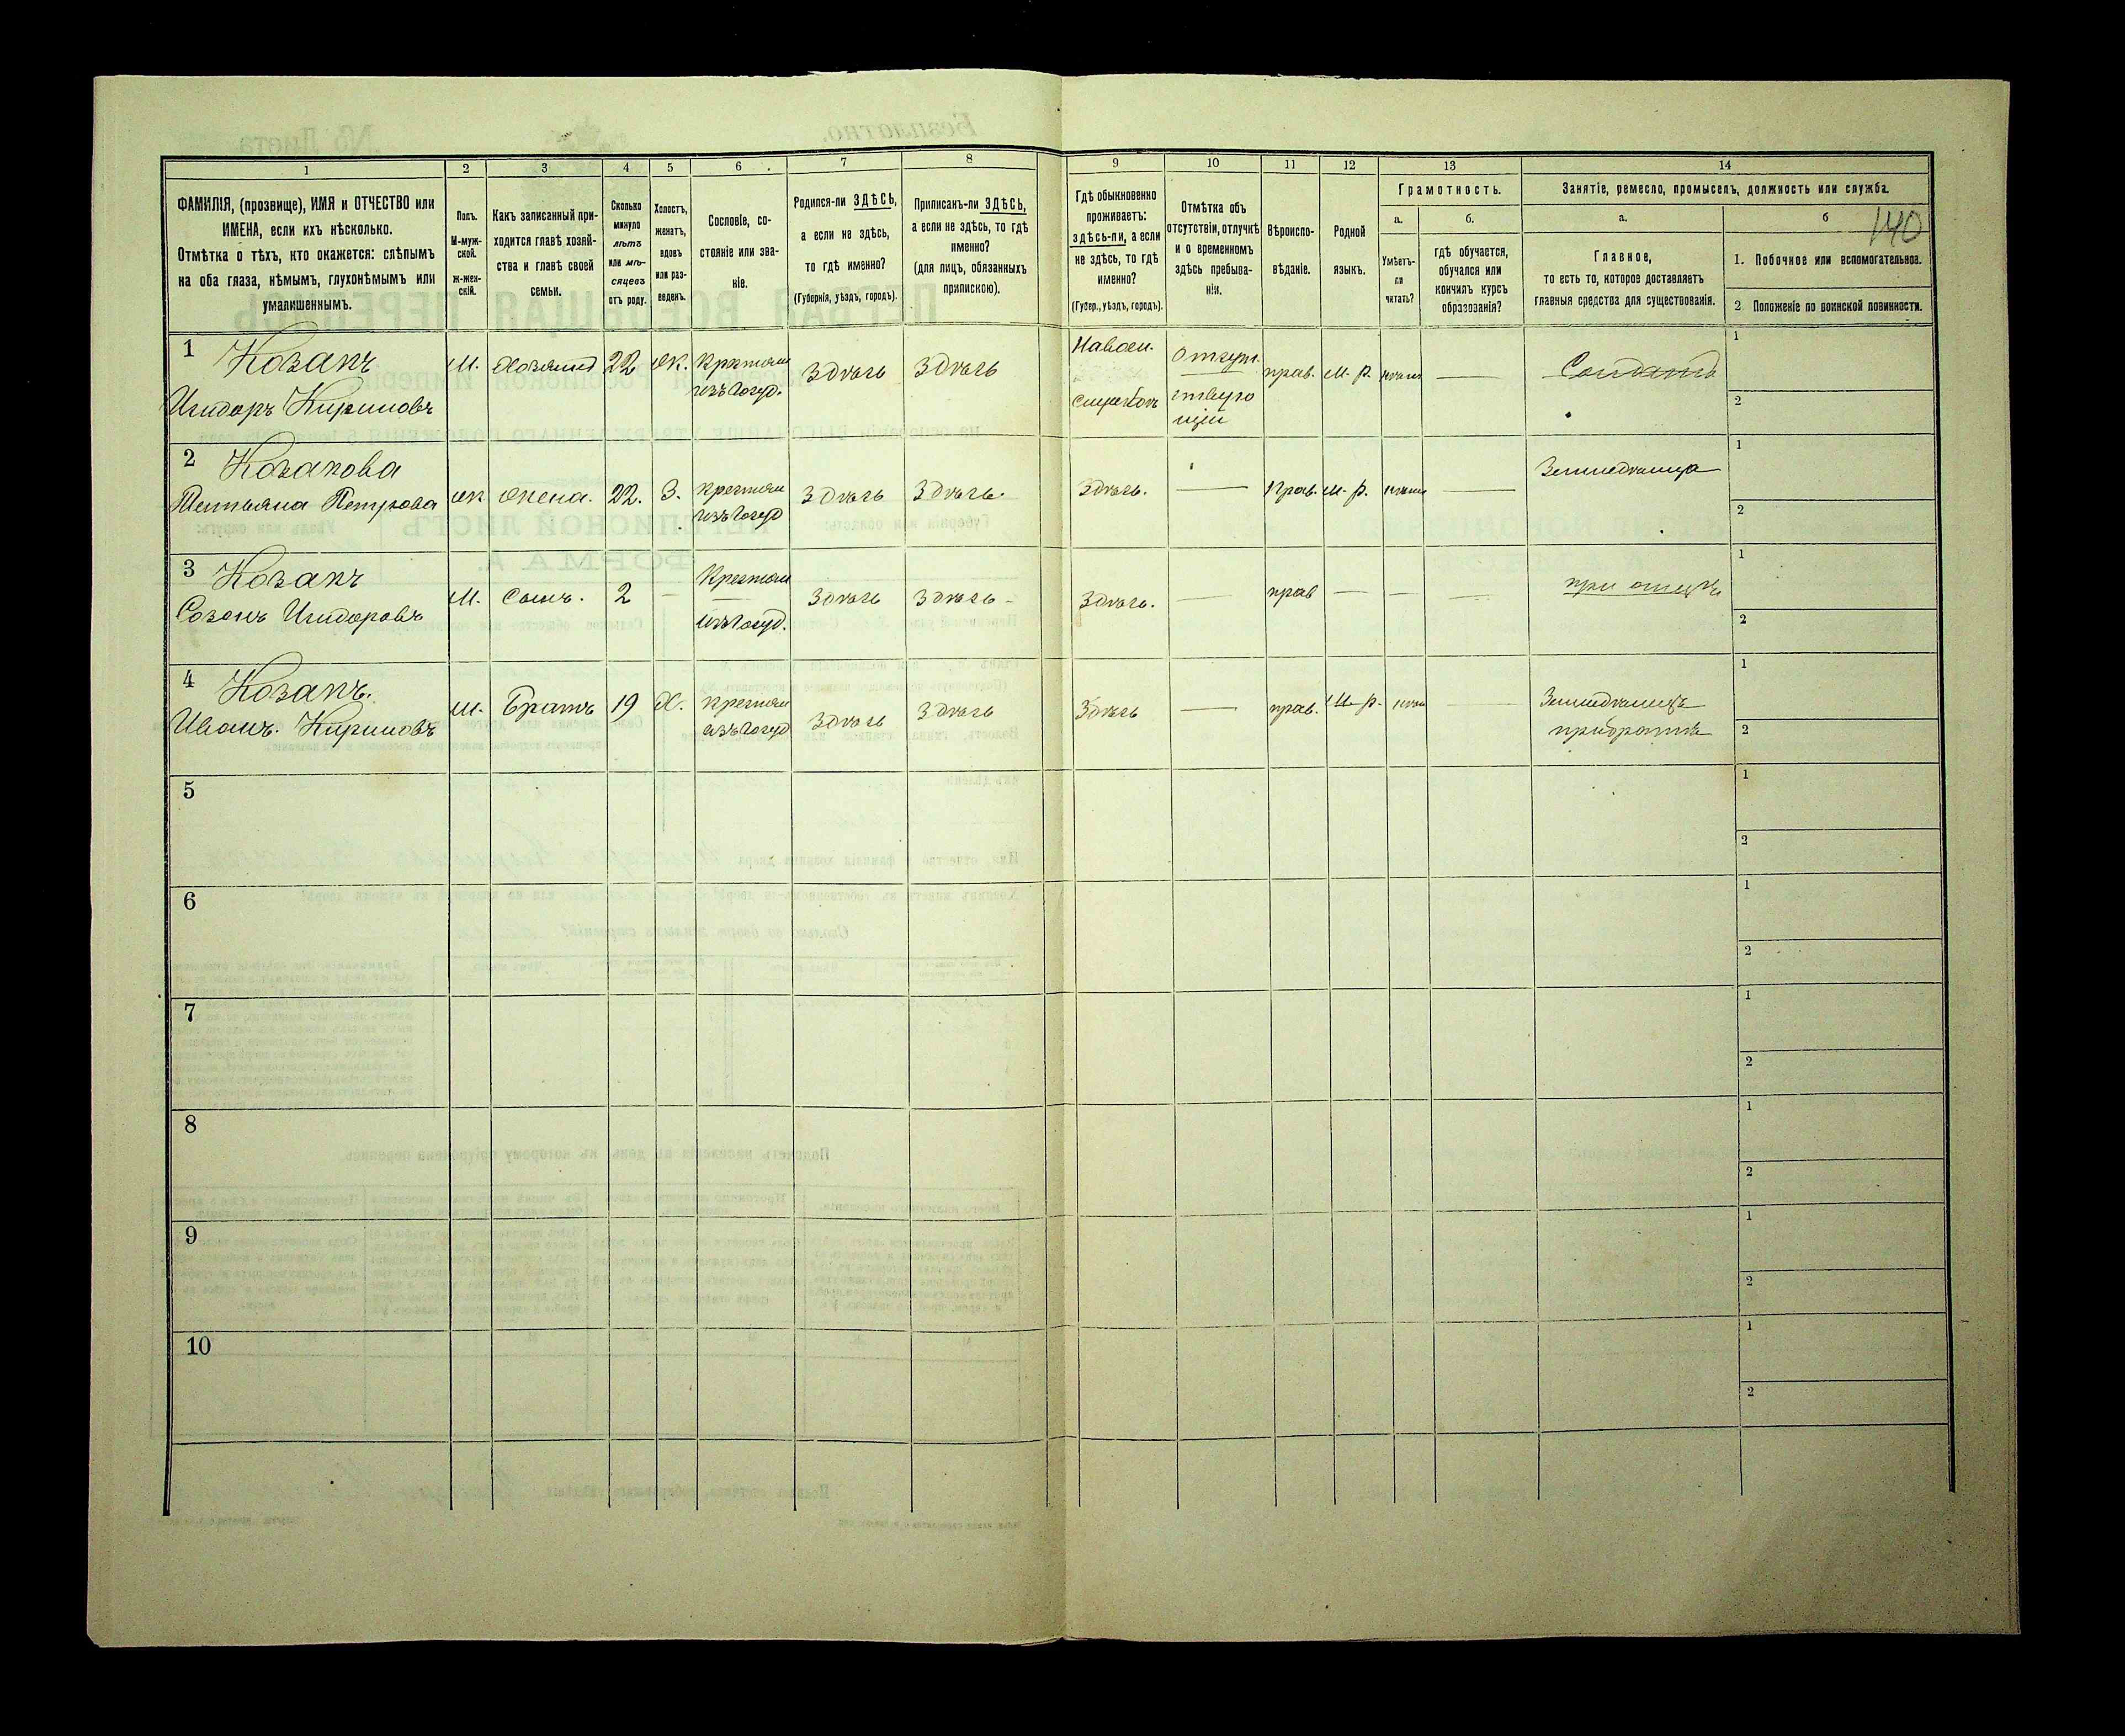 1
2
3
4
5
6
7
8
9
10
11
12
13
14
ФАМИЛІЯ, (прозвище), ИМЯ и ОТЧЕСТВО или
ИМЕНА, если ихъ нѣсколько.
Отмѣтка о тѣхъ, кто окажется: слѣпымъ
на оба глаза, нѣмымъ, глухонѣмымъ или
умалишеннымъ.
Полъ.
М-муж-
ской.
ж-жен-
скій.
Какъ записанный при-
ходится главѣ хозяй-
ства и главѣ своей
семьи.
Сколько
минуло
лѣтъ
или мѣ-
сяцевъ
отъ роду.
Холостъ,
женатъ,
вдовъ
или раз-
веденъ.
Сословіе, со-
стояніе или зва-
ніе.
Родился-ли ЗДѢСЬ,
а если не здѣсь,
то гдѣ именно?
(Губернія, уѣздъ, городъ).
Приписанъ-ли ЗДѢСЬ,
а если не здѣсь, то гдѣ
именно?
(для лицъ, обязанныхъ
припискою).
Гдѣ обыкновенно
проживаетъ:
здѣсь-ли, а если
не здѣсь, то гдѣ
именно?
(Губер., уѣздъ, городъ).
Отмѣтка объ
отсутствіи, отлучкѣ
и о временномъ
здѣсь пребыва-
ніи.
Вѣроиспо-
вѣданіе.
Родной
языкъ.
Грамотность.
а.
б.
Умѣетъ-
ли
читать?
гдѣ обучается,
обучался или
кончилъ курсъ
образованія?
Занятіе, ремесло, промыселъ, должность или служба.
а.
б
140
Главное,
то есть то, которое доставляетъ
главныя средства для существованія.
1. Побочное или вспомогательное.
2 Положеніе по воинской повинности.
1 Козакъ
Исидоръ Кириловъ
м. Хозяинъ 22 ж. Крестьян
изъ Госуд.
Здѣсь Здѣсь
отсут
ствую
щій
прав. м. р. — Солдатъ
1
2
2 Козакова
Петрова
ж жена. 22. З. крестьян
изъ Госуд
Здѣсь Здѣсь. Здѣсь. — Прав. м. р. —
1
2
3 Козакъ
Созонъ Исидоровъ
М. Сынъ. 2 — Крестьян
изъ Госуд.
Здѣсь Здѣсь - Здѣсь. — прав — — — при отцѣ
1
2
4 Козакъ.
Иванъ. Кириловъ
м. Братъ 19 Х. крестьян
изъ Госуд
Здѣсь Здѣсь Здѣсь — прав. М. р. — Земледѣлецъ
при братѣ
1
2
5
1
2
6
1
2
7
1
2
8
1
2
9
1
2
10
1
2